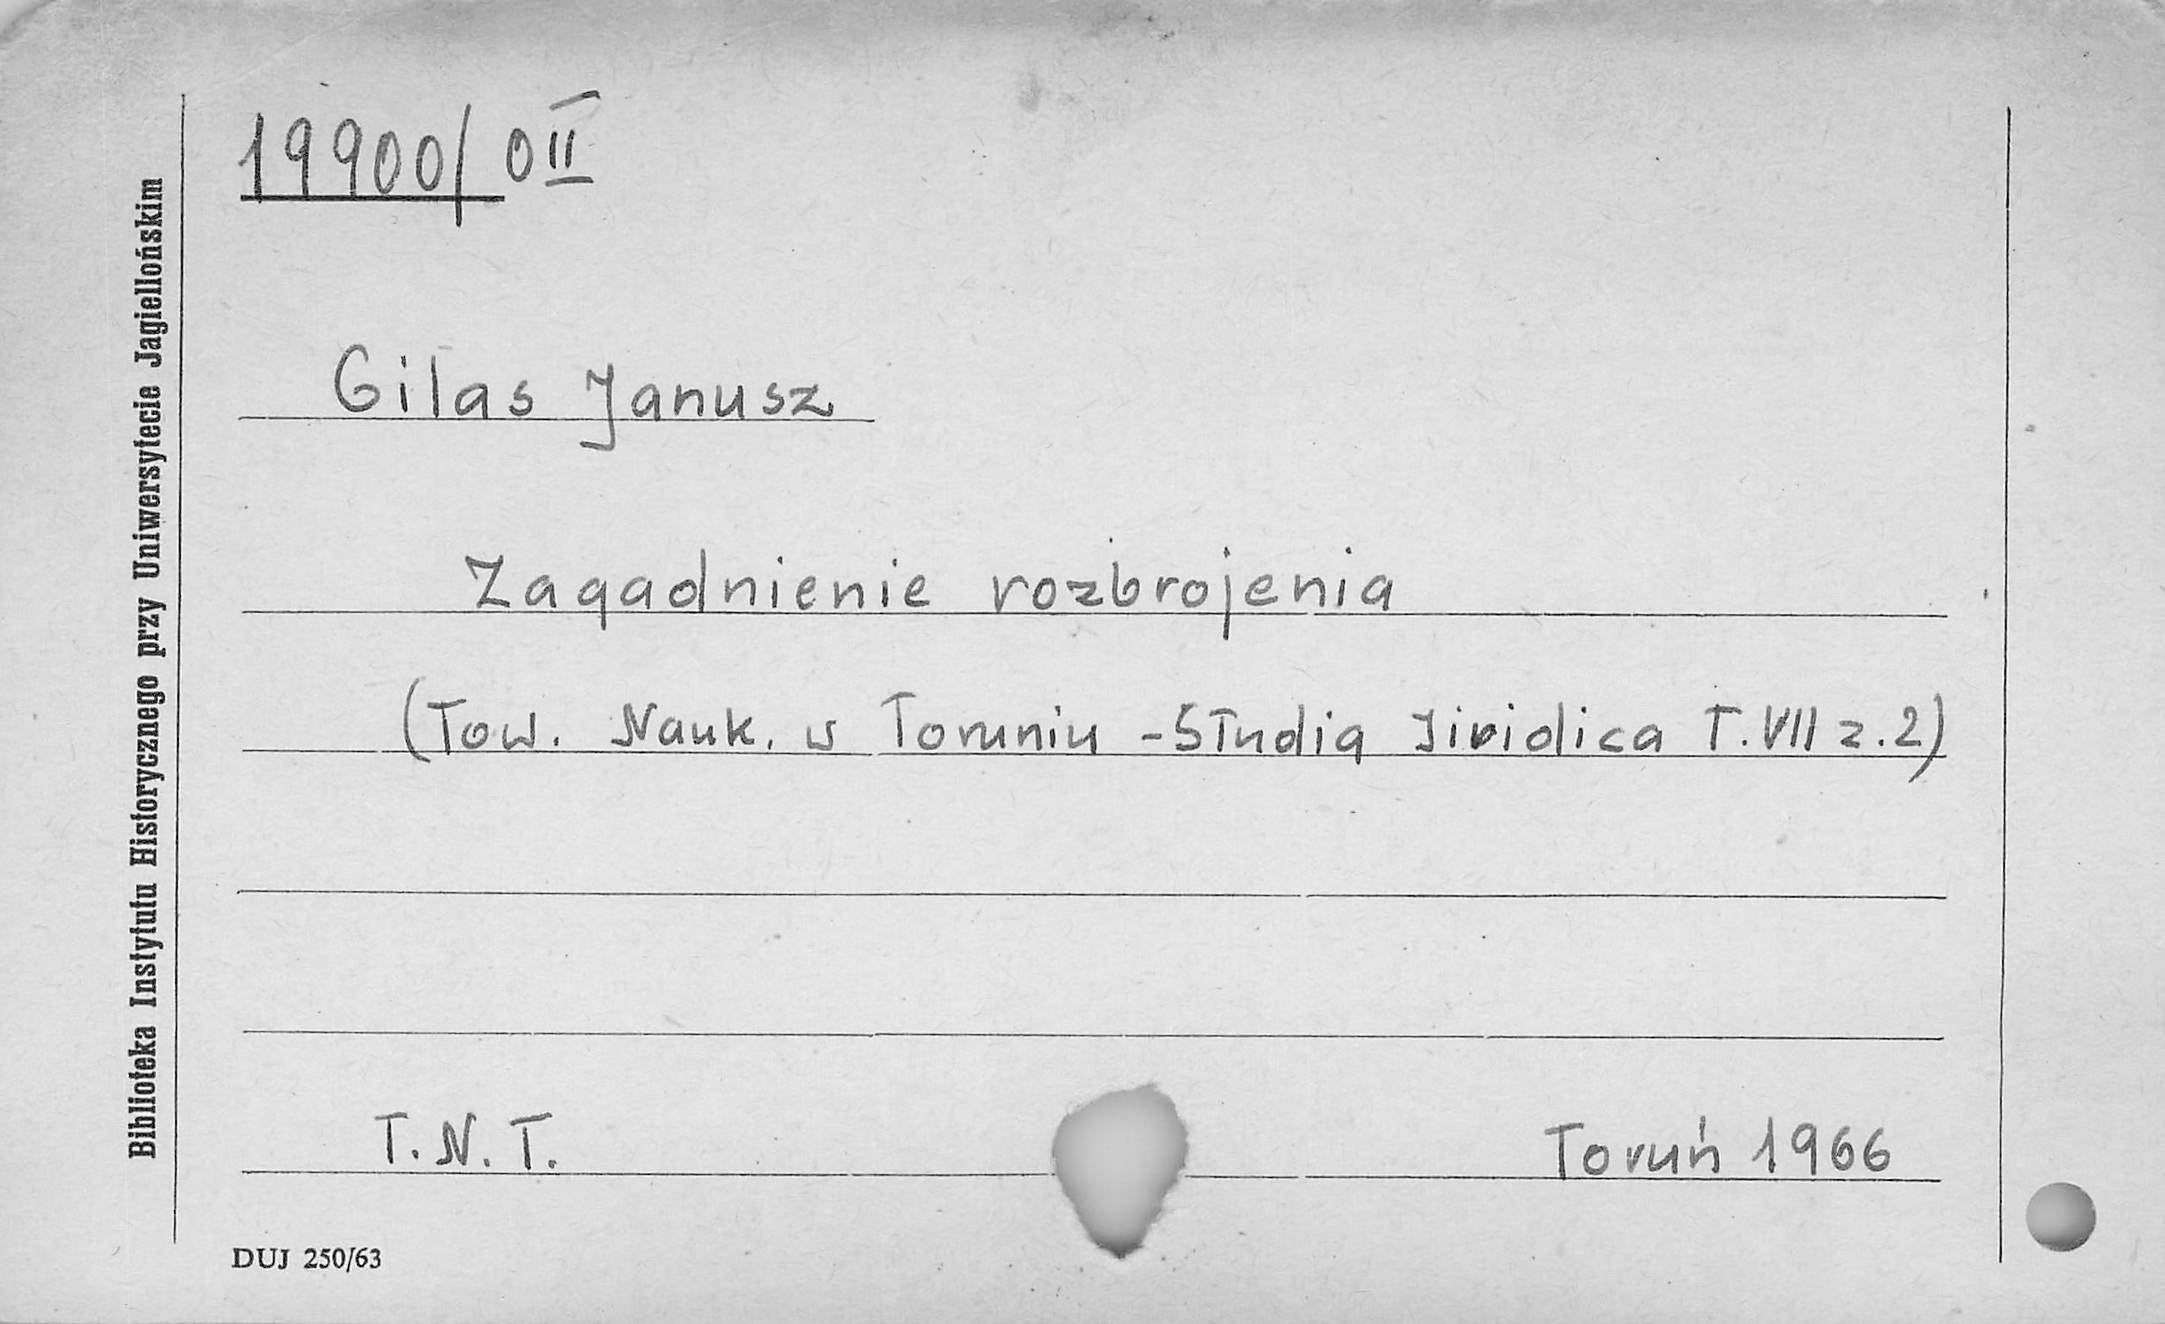 19900/ 0 II
Gilas Janusz
Zagadnienie rozbrojenia
(Tow. Nauk. w Toruniu - Studia Jiridica T. VII z. 2)
T. N. T.
Toruń 1966
DUJ 250/63
Biblioteka Instytutu Historycznego przy Uniwersytecie Jagiellońskim